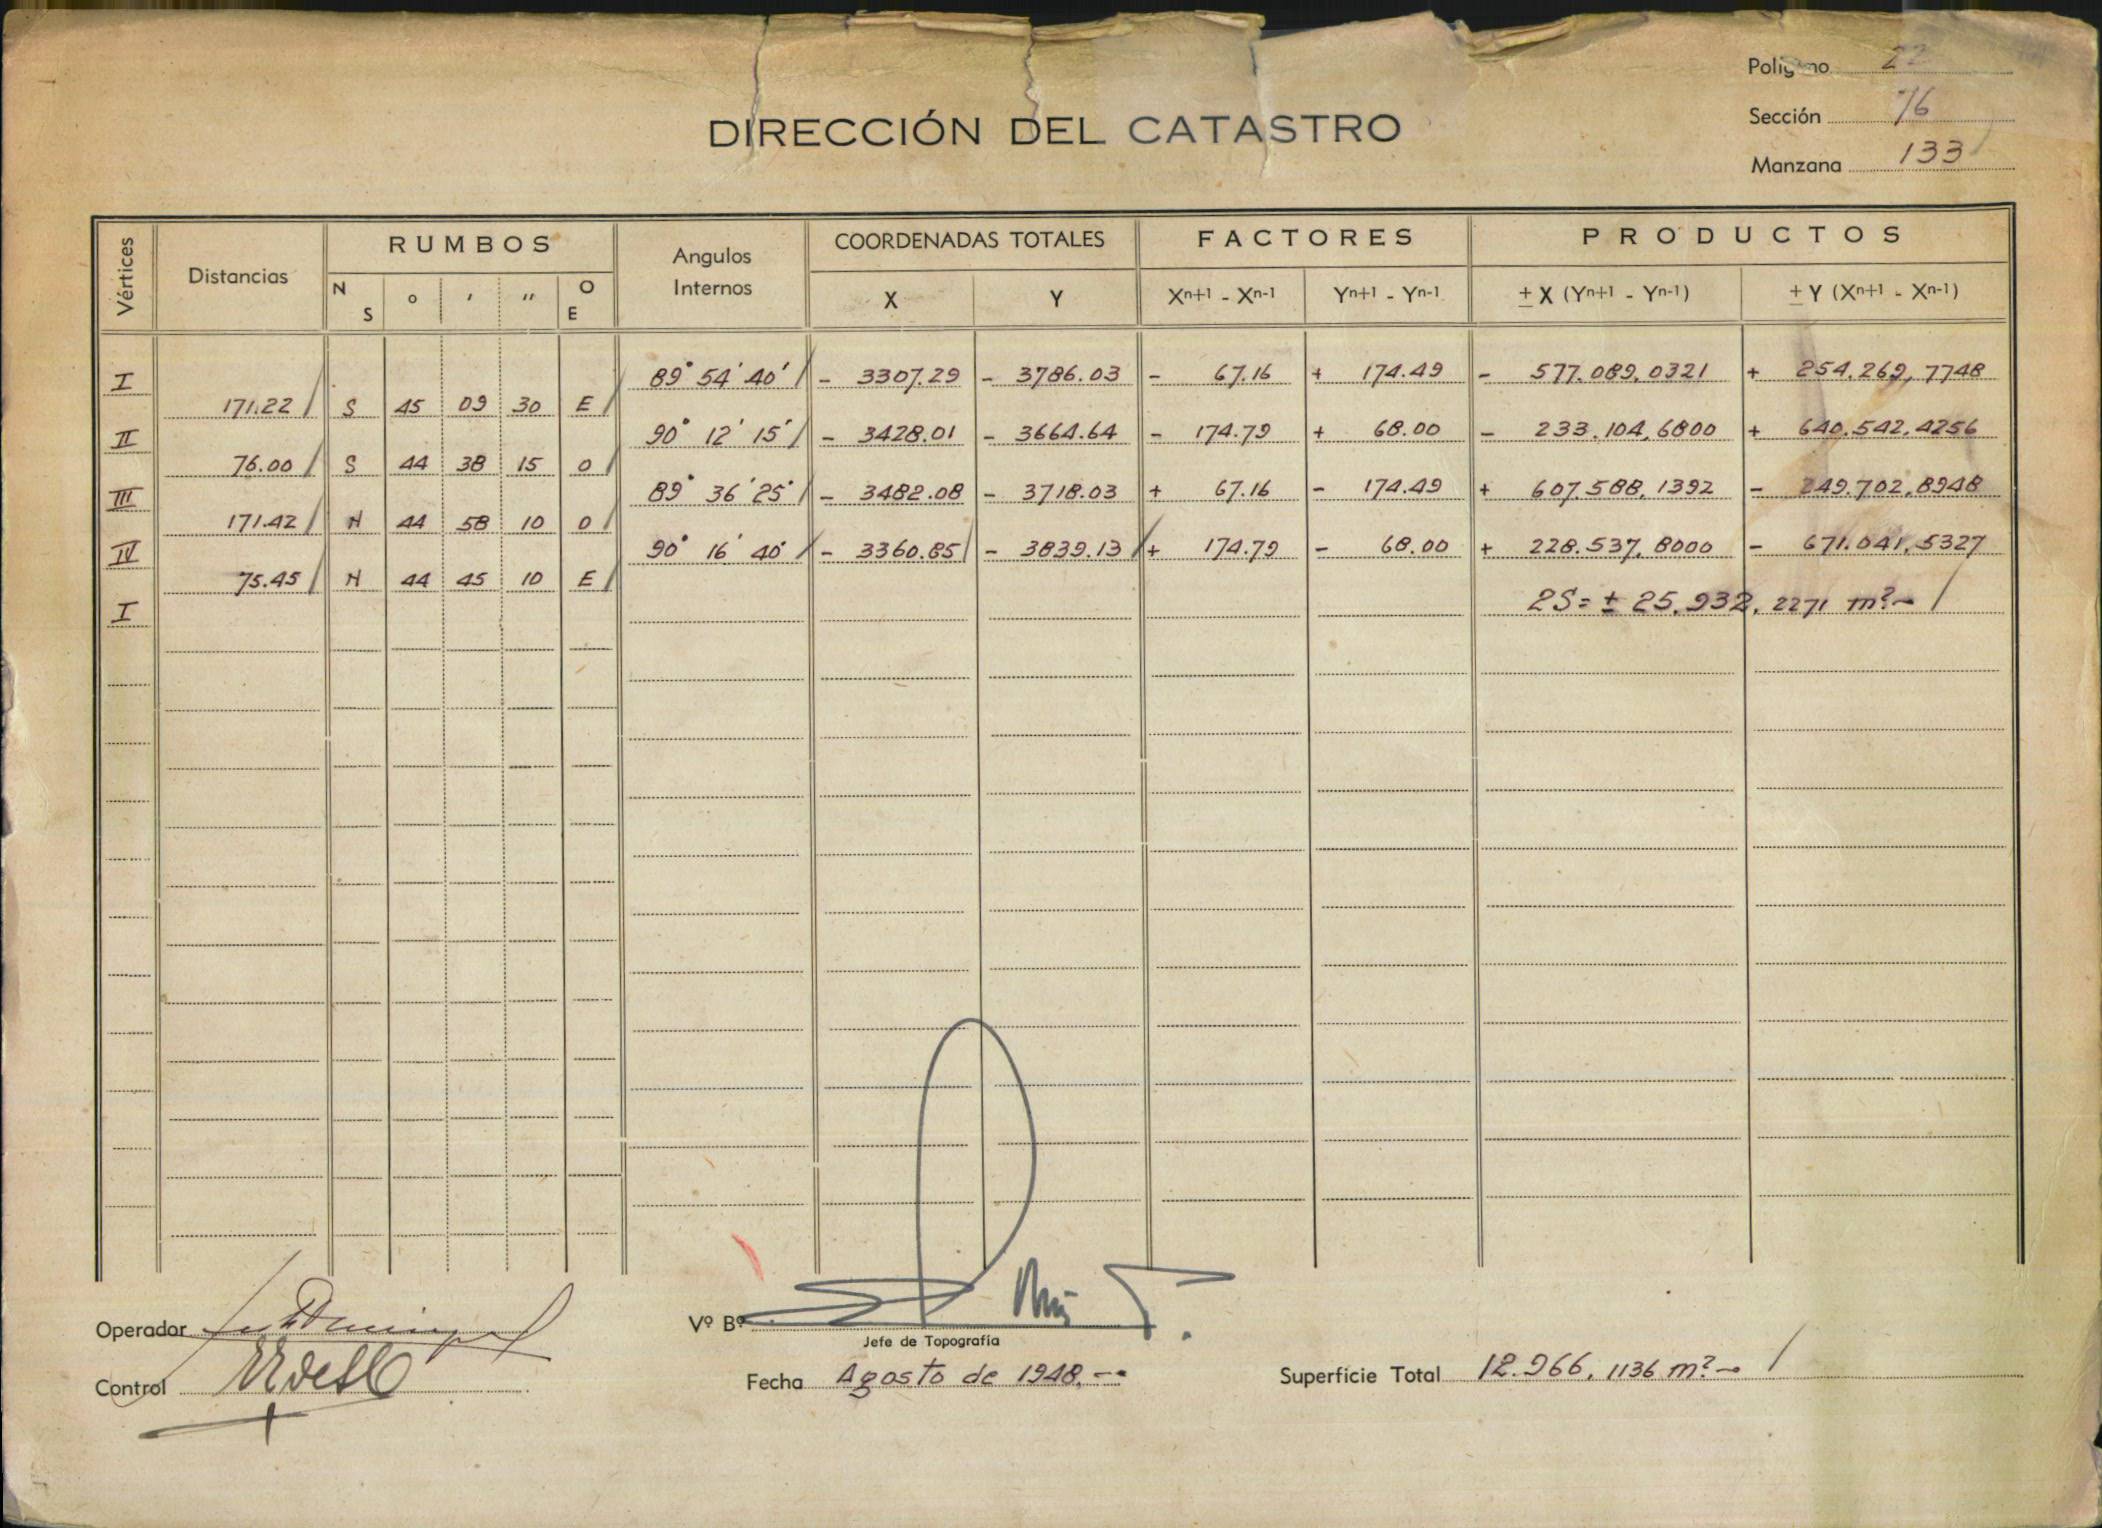 Polígono 22
Sección 76
Manzana 133
DIRECCIÓN DEL CATASTRO
Vértices Distancias RUMBOS Angulos Internos COORDENADAS TOTALES FACTORES PRODUCTOS
N S o ' " O E X Y Xn+1 - Xn-1 Yn+1 - Yn-1 ± X (Yn+1 - Yn-1) ± Y (Xn+1 - Xn-1)
I 89° 54' 40' - 3307.29 - 3786.03 - 67.16 + 174.49 - 577.089,0321 + 254.269,7748
171.22 S 45 09 30 E
II 90° 12' 15' - 3428.01 - 3664.64 - 174.79 + 68.00 - 233.104,6800 + 640.542,4256
76.00 S 44 38 15 O
III 89° 36' 25' - 3482.08 - 3718.03 + 67.16 - 174.49 + 607.588,1392 - 249.702,8948
171.42 N 44 58 10 O
IV 90° 16' 40' - 3360.85 - 3839.13 + 174.79 - 68.00 + 228.537,8000 - 671.041,5327
75.45 N 44 45 10 E
I 2S = ± 25.932,2271 m².-
Operador
Vº Bº
Jefe de Topografía
Control
Fecha Agosto de 1948.-
Superficie Total 12.966,1136 m².-